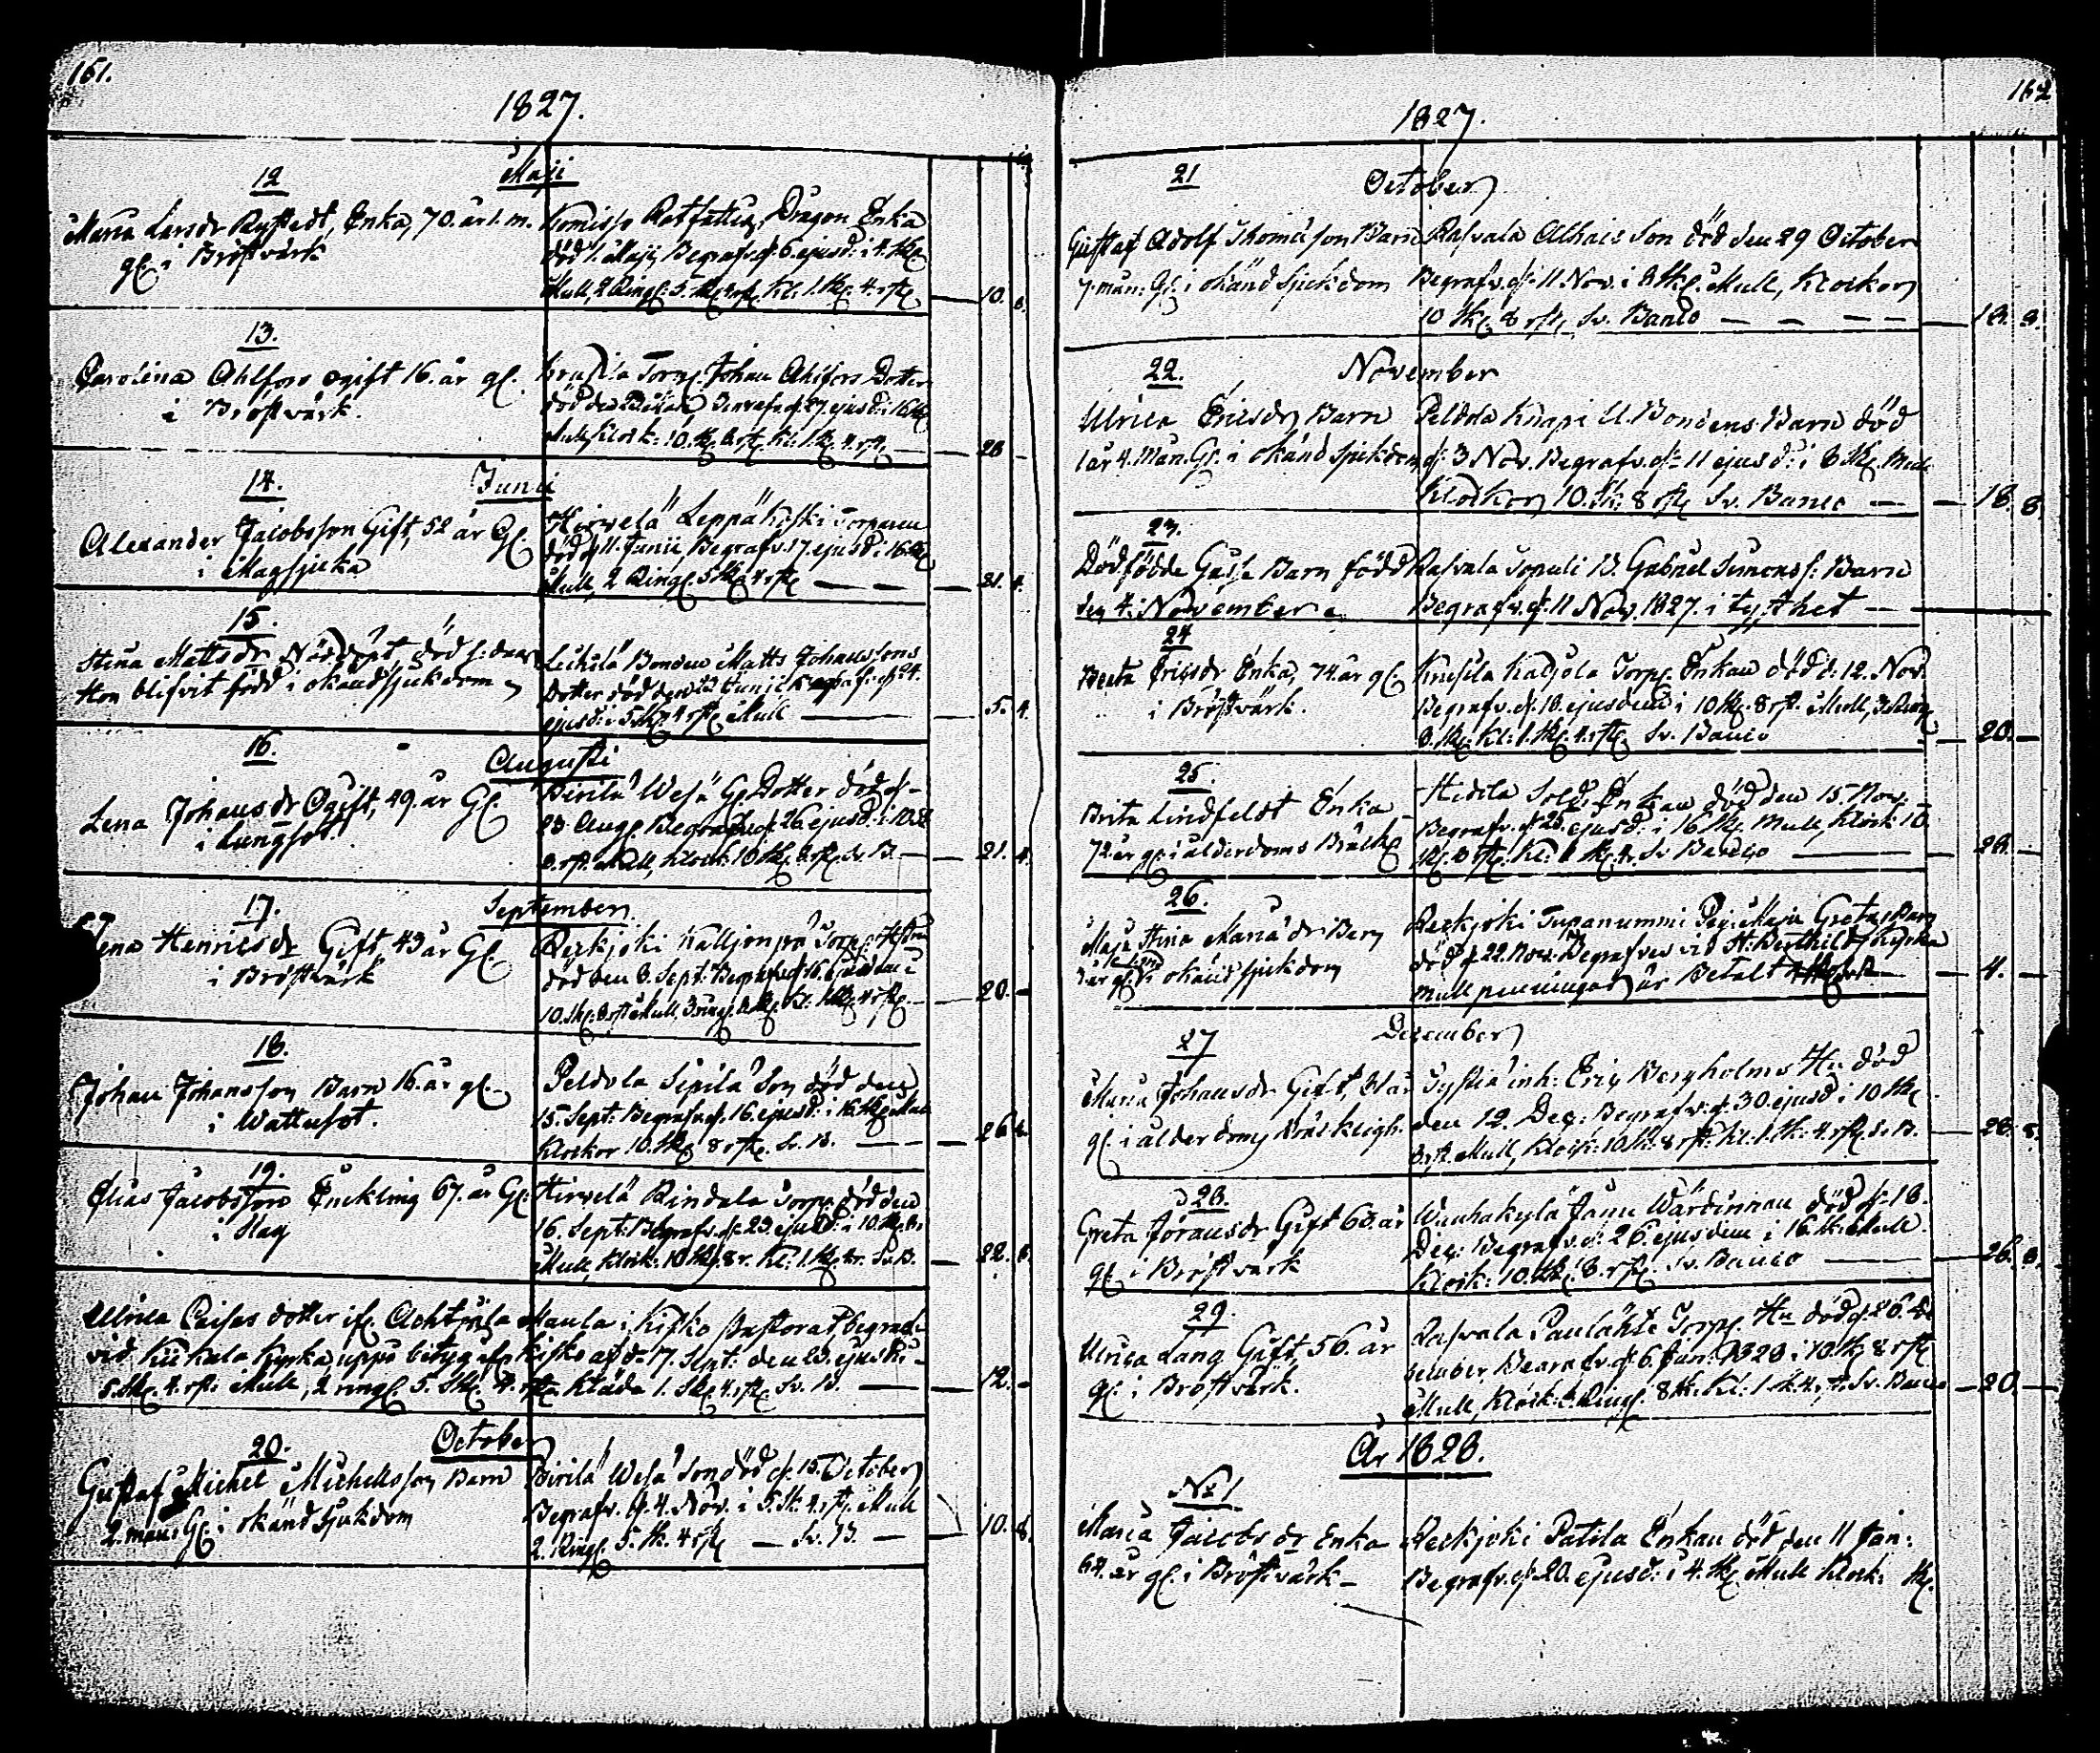 161.
1827.
Maji
12
Maria Larsdr Rystedt, Enka, 70. år 1. m.
gl. i Bröstvärk
Komisso Rotfattig, Dragon Enka
död 1. Maji, Begrafv. d. 6. ejusd: i 4. sk.
Mull, 2 Ringl. 5. sk. 4 rst. Kl: 1. sk. 4. rst.
10. 8.
13.
Carolina Ahlfors ogift 16. år gl.
i Bröstvärk.
Torp. Johan Ahlfors Dotter
Begrafv. d. 27. ejusd: i 16 sk.
Mull, Klock: 10. sk. 8 rst. Kl: 1. sk. 4. rst.
28 -
14.
Junii
Alexander Jacobsson Gift, 52 år Gl.
i Magsjuka
Hirvelä Leppäkoski Torparen
död d. 11. Junii, Begrafv. 17. ejusd: i 16. sk.
Mull, 2 Ringl. 5 sk. 4 rst.
21. 4.
15.
Stina Mattsdr Nöddöpt död s. dag
Hon blifvit född i okänd sjukdom
Bonden Matts Johanssons
Dotter död den Junii Begrafv. d. 24.
ejusd: i 5 sk. 4 rst. Mull
5. 4.
16.
Augusti
Lena Johansdr Ogift, 49. år Gl.
i Lungsot.
Pirilä Wesa Gl. Dotter död d.
23. Aug. Begrafv. d. 26 ejusd: i 10. sk.
8. rst. Mull, Klock: 10 sk. 8 rst. Sv. B.
21. 4.
17.
September
Lena Henricsdr Gift, 43 år Gl.
i Bröstvärk
Reckjoki Kalljonpä Torp: Hustru
död den 8. Sept: Begrafv. d. 16. ejusdem i
10. sk. 8 rst Mull, 3 ringl. 8 sk. Kl. 1 sk. 4 rst.
20. -
18.
Johan Johansson Barn 16. år gl.
i Wattusot.
Peldola Sipilä Son död den
15. Sept: Begrafv. d. 16. ejusd: i 16. sk. Mull
Klockor 10. sk. 8 rst. Sv. B.
26. 8.
19.
Elias Jacobsson Enckling 67. år Gl.
i Slag
Hirvelä Rindala Torp. död den
16. Sept: Begrafv. d. 23. ejusd: i 10. sk. 8 r.
Mull, Klock: 10 sk. 8 r. Kl: 1. sk. 4 r. Sv. B.
22. 8.
Ulrica Caisas dotter ifr. Maula i Kisko Pastorat, begrafv.
vid Kiikala Kyrka, uppå betyg ifr. Kisko af d. 17. Sept: den 23. ejusd:
5. sk. 4. rst. Mull, 2 ringl. 5. sk. 4. rst. Kläde 1. sk. 4. rst. Sv. B.
12. -
20.
October
Gustaf Michel Michelsson Barn
2. mån: Gl. i okänd sjukdom
Pirilä Wesa Son död d. 15. October
Begrafv. d. 4. Nov. i 5. sk. 4. rst. Mull
2. Ringl. 5. sk. 4 rst. Sv. B.
10. 8.
162
1827.
21
October
Gustaf Adolf Thomasson Barn
7. mån: Gl. i okänd sjukdom
Rasvala Alhais Son död den 29 October
Begrafv. d. 11. Nov. i 8 sk. Mull, Klockor
10 sk. 8 rst. Sv. Banco
18. 8.
22.
November
Ulrica Ericsdr Barn
1 år 4. Mån. Gl. i okänd sjukdom
Peldola Knapi U. Bondens Barn död
d. 3 Nov. Begrafv. d. 11 ejusd: i 8 sk. Mull
Klockor 10. sk. 8 rst. Sv. Banco
18. 8.
23.
Dödfödde Gosse Barn född
den 4. November
Rasvala Sopuli B. Gabriel Simonss: Barn
Begrafv. d. 11 Nov. 1827. i tysthet
24
Berta Ericsdr Enka, 74. år gl.
i Bröstvärk.
Torp. Enkan död d. 12. Nov.
Begrafv. d. 18. ejusdem i 10 sk. 8 rst. Mull, 3 Ringl.
8. sk. Kl: 1. sk. 4. rst. Sv. Banco
20. -
25.
Brita Lindfeldt Enka
72 år gl. i ålderdoms Bräckl.
Hidola Sold. Enkan död den 15. Nov.
Begrafv. d. 25. ejusd: i 16 sk. Mull, Klock: 10
sk. 8 rst. Kl: 1 sk. 4 r. Sv Banco
28. -
26.
Maja Stina Mariadr Barn
3 år gl. i okänd sjukdom
Reckjoki Tupanummi Pig. Maja Greta Barn
död d. 22. Nov. Begrafven vid St. Berthils Kyrka
Mull penningar är Betalt
4. -
27
December
Maria Johansdr Gift, 81 år
gl. i ålderdoms bräckligh.
inh: Eric Bergholms Hu död
den 12. Dec: Begrafv: d. 30. ejusd i 10 sk.
8 rst. Mull, Klock: 10 sk: 8 rst: Kl: 1. sk: 4. rst. Sv. B.
28. 8.
28.
Greta Göransdr Gift 63. år
gl. i Bröstvärk
Wanhakylä Janu Wärdinnan död d. 18.
Dec: Begrafv. d. 26. ejusdem i 16. sk. Mull
Klock: 10. sk. 8. rst. Sv. Banco
26. 8.
29.
Ulrica Lang Gift, 56. år
gl. i Bröstvärk.
Rasvala Torp. Hu död d. 26. De-
cember, Begrafv. d. 6. Jan: 1828 i 10. sk. 8 rst.
Mull, 3. Ringl. 8 sk. Kl: 1 sk. 4. rst. Sv. Banco
20. -
År 1828.
No 1
Maria Jacobsdr Enka
64. år gl. i Bröstvärk
Reckjoki Patola Enkan död den 11 Jan:
Begrafv. d. 20. ejusd: i 4. sk. Mull Klock: sk.